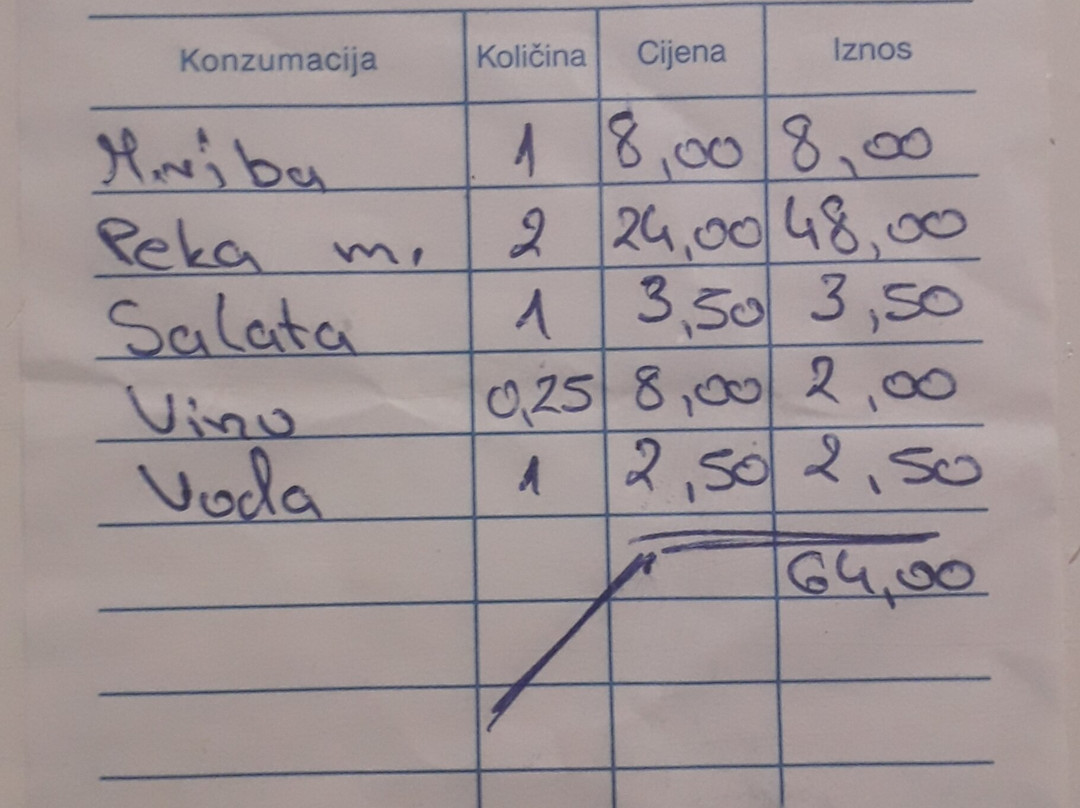 Konzumacija Količina Cijena Iznos
M.riba 1 8,00 8,00
Peka m. 2 24,00 48,00
Salata 1 3,50 3,50
Vino 0,25 8,00 2,00
Voda 1 2,50 2,50
64,00